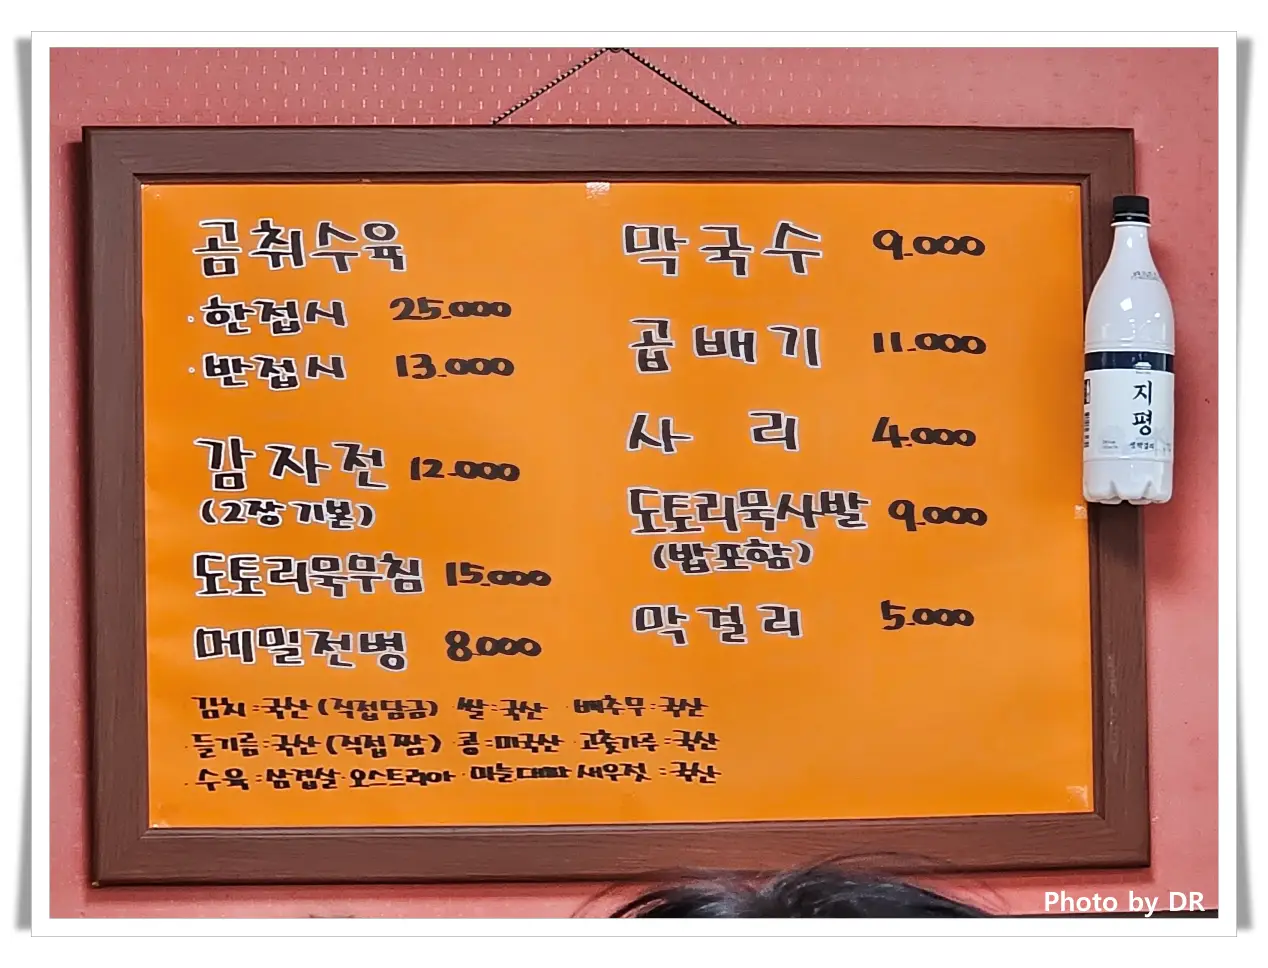 곰취수육
· 한접시 25.000
· 반접시 13.000
감자전 12.000
(2장 기본)
도토리묵무침 15.000
메밀전병 8.000
막국수 9.000
곱배기 11.000
사리 4.000
도토리묵사발 9.000
(밥포함)
막걸리 5.000
김치:국산 (직접담금) 쌀:국산 배추무:국산
들기름:국산 (직접짬) 콩:미국산 고춧가루:국산
수육:삼겹살 오스트리아 마늘대파 새우젓:국산
지평
Photo by DR